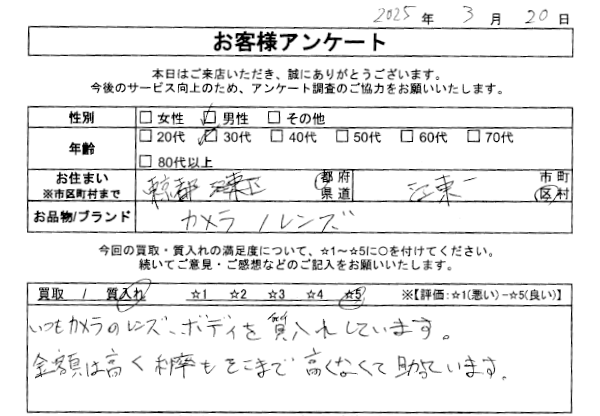 2025 年 3 月 20 日
お客様アンケート
本日はご来店いただき、誠にありがとうございます。
今後のサービス向上のため、アンケート調査のご協力をお願いいたします。
性別 □ 女性 □ 男性 □ その他
年齢 □ 20代 □ 30代 □ 40代 □ 50代 □ 60代 □ 70代
□ 80代以上
お住まい ※市区町村まで 東京都 江東区 都府県道 江東 市町区村
お品物/ブランド カメラ / レンズ
今回の買取・質入れの満足度について、☆1～☆5に○を付けてください。
続いてご意見・ご感想などのご記入をお願いいたします。
買取 / 質入れ ☆1 ☆2 ☆3 ☆4 ☆5 ※【評価:☆1(悪い)-☆5(良い)】
いつもカメラのレンズ、ボディを質入れしています。
金額は高く利率もそこまで高くなくて助っています。